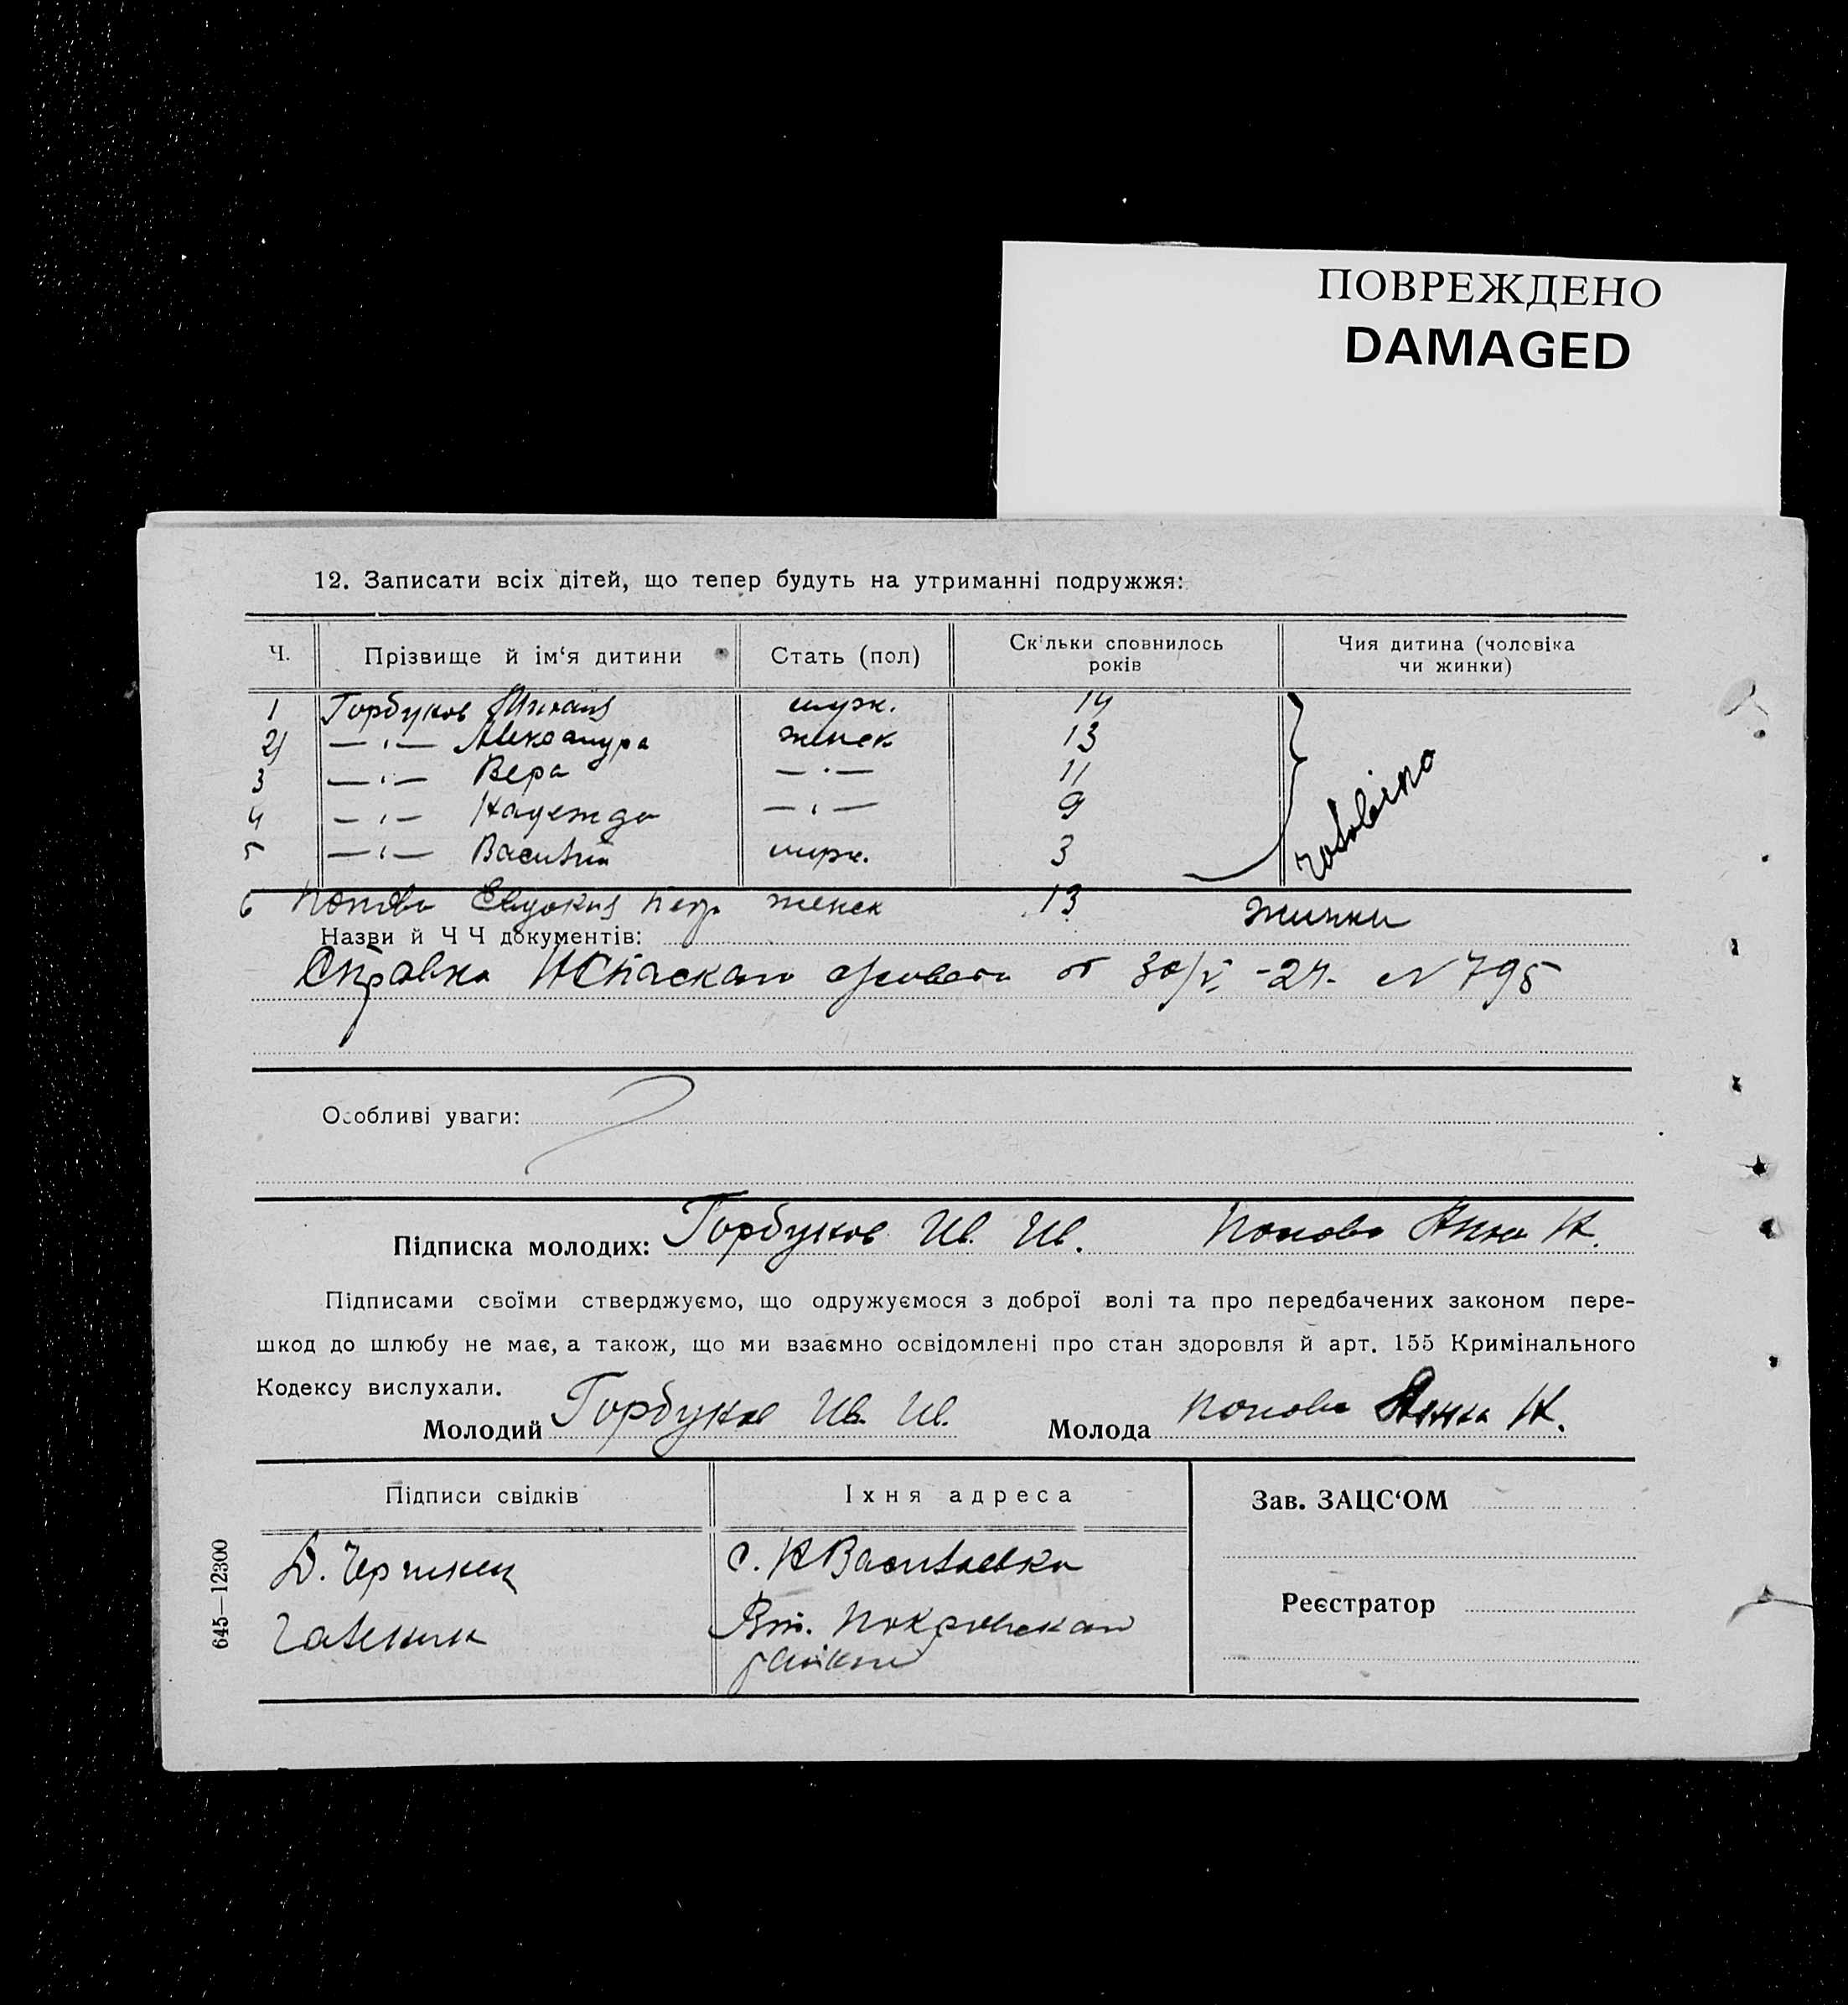 ПОВРЕЖДЕНО
DAMAGED
12. Записати всіх дітей, що тепер будуть на утриманні подружжя:
Ч. Прізвище й ім‘я дитини Стать (пол) Скільки сповнилось років Чия дитина (чоловіка чи жинки)
1 Горбуков Михаил мужж. 14
2) —"— Александра женск 13
3 —"— Вера —"— 11
4 —"— Надежда —"— 9
5 —"— Василий мужж. 3
чоловіка
6 Попова Евдокия Петр женск 13 жинки
Назви й Ч Ч документів:
Справка НСпаскаго от 30/V -24. N 795
Особливі уваги:
Підписка молодих: Горбуков Ив. Ив. Попова Анна Н.
Підписами своїми стверджуємо, що одружуємося з доброї волі та про передбачених законом пере-
шкод до шлюбу не має, а також, що ми взаємно освідомлені про стан здоровля й арт. 155 Кримінального
Кодексу вислухали.
Молодий Горбуков Ив. Ив. Молода Попова Анна Н.
Підписи свідків Їхня адреса Зав. ЗАЦС‘ОМ
с. НВасильевка
Вт. Покровскаго
района
Реєстратор
645—12300